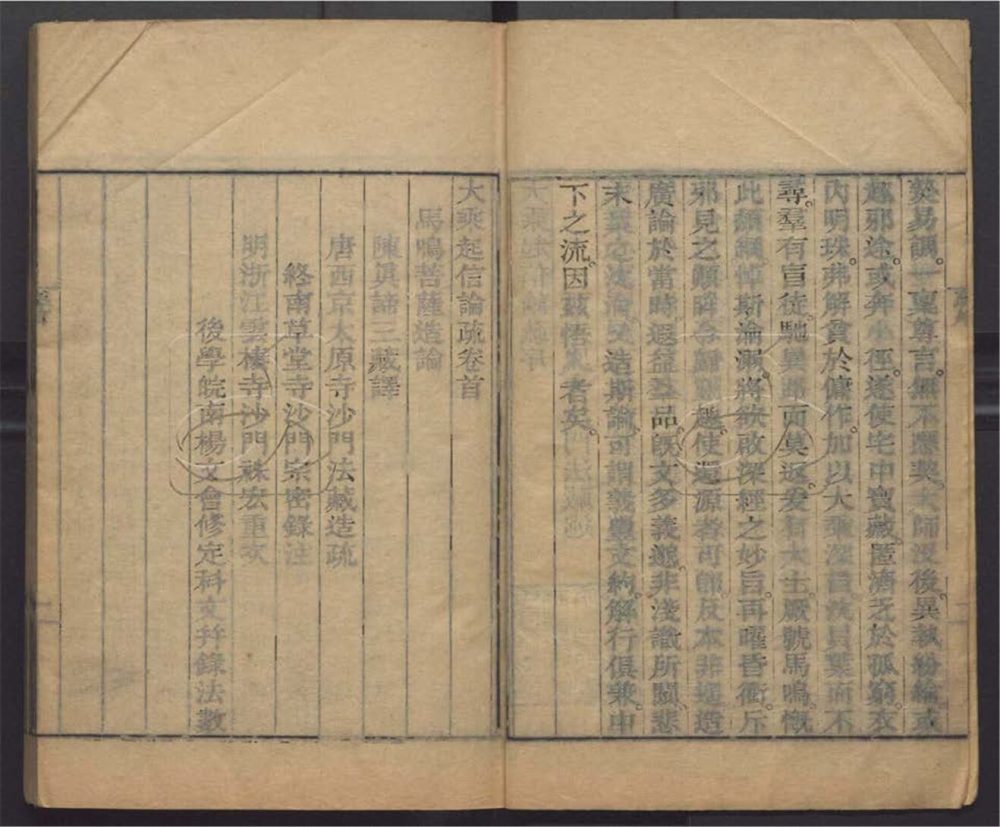 易調一稟尊言。無不懸契。大師沒後。異執紛綸。或
趣邪途。或奔小徑。遂使宅中寶藏。匱濟乏於孤窮。衣
內明珠。弗解貧於傭作。加以大乘深旨。沈貝葉而不
尋。羣有盲徒。馳異路而莫返。爰有大士。厥號馬鳴。慨
此頹綱。悼斯淪溺。將欲啟深經之妙旨。再曜昏衢。斥
邪見之顛眸。令歸正趣。使還源者可卽。反本非遙。造
廣論於當時。遐益羣品。旣文多義邈。非淺識所闚。悲
末葉之迷淪。又造斯論。可謂義豐文約。解行俱兼。中
下之流。因茲悟入者矣。
大乘起信論疏卷首
馬鳴菩薩造論
陳眞諦三藏譯
唐西京太原寺沙門法藏造疏
終南草堂寺沙門宗密錄注
明浙江雲棲寺沙門袾宏重訂
後學皖南楊文會修定科文幷錄法數